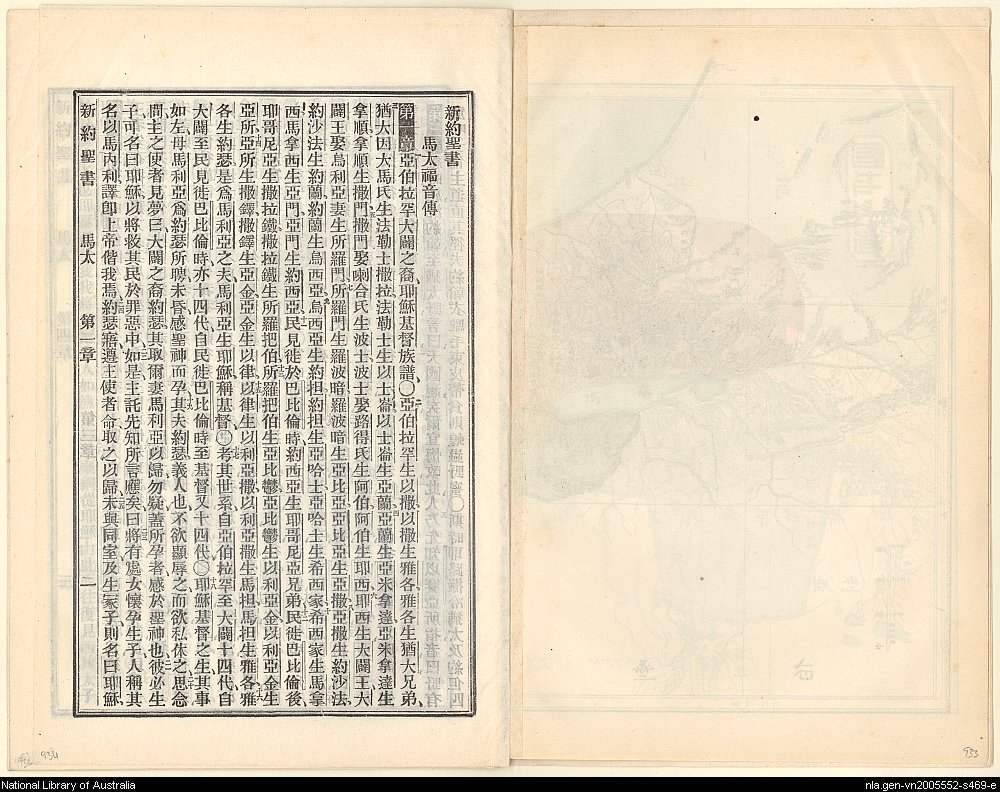 新約聖書
馬太福音傳
第一章亞伯拉罕大闢之裔耶穌基督族譜〇亞伯拉罕生以撒以撒生雅各雅各生猶大兄弟
猶大因大馬氏生法勒士撒拉法勒士生以士崙以士崙生亞蘭亞蘭生亞米拿達亞米拿達生
拿順拿順生撒門撒門娶喇合氏生波士波士娶路得氏生阿伯阿伯生耶西耶西生大闢王大
闢王娶烏利亞妻生所羅門所羅門生羅波暗羅波暗生亞比亞亞比亞生亞撒亞撒生約沙法
約沙法生約蘭約蘭生烏西亞烏西亞生約担約担生亞哈士亞哈士生希西家希西家生馬拿
西馬拿西生亞門亞門生約西亞民見徙於巴比倫時約西亞生耶哥尼亞兄弟民徙巴比倫後
耶哥尼亞生撒拉鐵撒拉鐵生所羅把伯所羅把伯生亞比鬱亞比鬱生以利亞金以利亞金生
亞所亞所生撒鐸撒鐸生亞金亞金生以律以律生以利亞撒以利亞撒生馬担馬担生雅各雅
各生約瑟是爲馬利亞之夫馬利亞生耶穌稱基督〇考其世系自亞伯拉罕至大闢十四代自
大闢至民見徙巴比倫時亦十四代自民徙巴比倫時至基督又十四代〇耶穌基督之生其事
如左母馬利亞爲約瑟所聘未昏感聖神而孕其夫約瑟義人也不欲顯辱之而欲私休之思念
間主之使者見夢曰大闢之裔約瑟其取爾妻馬利亞以歸勿疑蓋所孕者感於聖神也彼必生
子可名曰耶穌以將救其民於罪惡中如是主託先知所言應矣曰將有處女懷孕生子人稱其
名以馬內利譯卽上帝偕我焉約瑟寤遵主使者命取之以歸未與同室及生冢子則名曰耶穌
新約聖書 馬太 第一章 一
934
933
National Library of Australia
nla.gen-vn2005552-s469-e